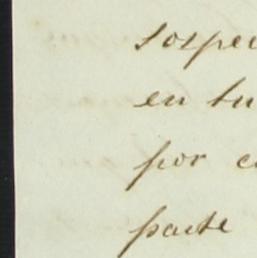 sospec
en tu
por c
parte